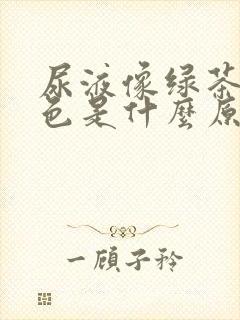 尿液像绿茶
色是什麼原
一顾子矜